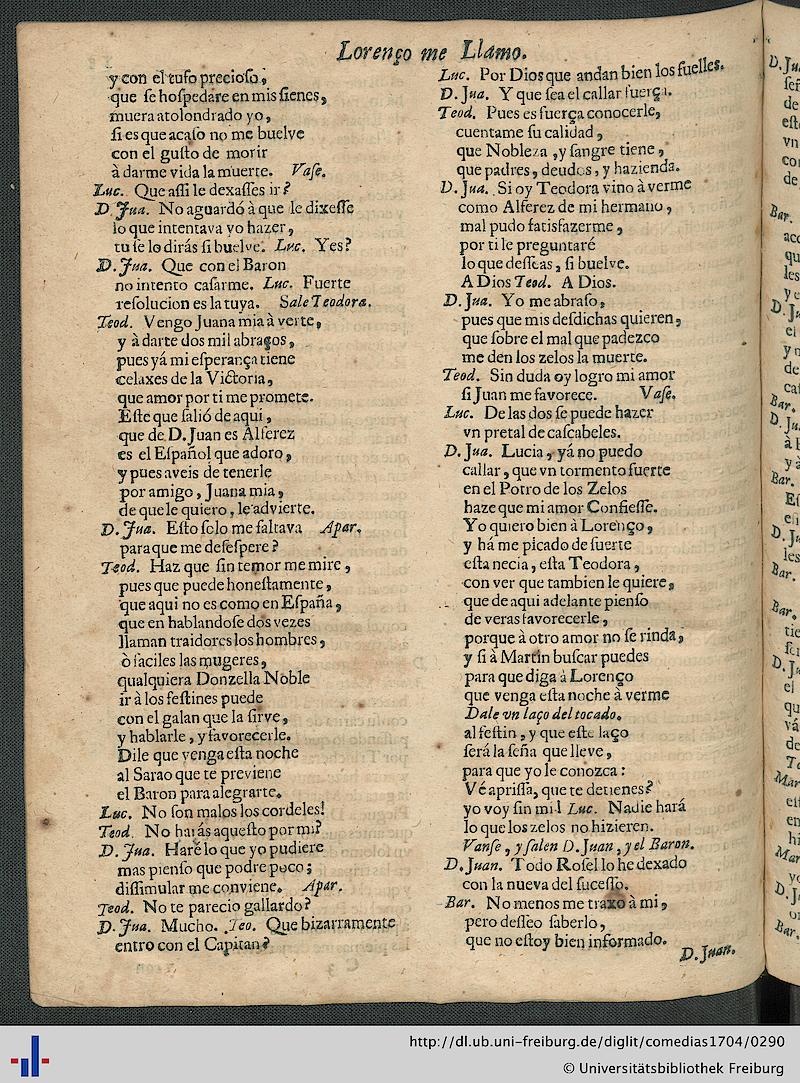 Lorenço me Llamo.
y con el tufo precioſo,
que ſe hoſpedare en mis ſienes,
muera atolondrado yo,
ſi es que acaſo no me buelve
con el guſto de morir
à darme vida la muerte. Vaſe.
Luc. Que aſſi le dexaſſes ir?
D. Jua. No aguardó à que le dixeſſe
lo que intentava yo hazer,
tu ſe lo dirás ſi buelve. Luc. Yes?
D. Jua. Que con el Baron
no intento caſarme. Luc. Fuerte
reſolucion es la tuya. Sale Teodora.
Teod. Vengo Juana mia à verte,
y à darte dos mil abraços,
pues yá mi eſperança tiene
celaxes de la Victoria,
que amor por ti me promete.
Eſte que ſalió de aqui,
que de D. Juan es Alferez
es el Eſpañol que adoro,
y pues aveis de tenerle
por amigo, Juana mia,
de que le quiero, le advierte.
D. Jua. Eſto ſolo me faltava Apar.
para que me deſeſpere?
Teod. Haz que ſin temor me mire,
pues que puede honeſtamente,
que aqui no es como en Eſpaña,
que en hablandoſe dos vezes
llaman traidores los hombres,
ò faciles las mugeres,
qualquiera Donzella Noble
ir à los feſtines puede
con el galan que la ſirve,
y hablarle, y favorecerle.
Dile que venga eſta noche
al Sarao que te previene
el Baron para alegrarte.
Luc. No ſon malos los cordeles!
Teod. No harás aqueſto por mi?
D. Jua. Haré lo que yo pudiere
mas pienſo que podre poco;
diſſimular me conviene. Apar.
Teod. No te parecio gallardo?
D. Jua. Mucho. Teo. Que bizarramente
entro con el Capitan?
Luc. Por Dios que andan bien los fuelles.
D. Jua. Y que ſea el callar fuerça.
Teod. Pues es fuerça conocerle,
cuentame ſu calidad,
que Nobleza, y ſangre tiene,
que padres, deudos, y hazienda.
D. Jua. Si oy Teodora vino à verme
como Alferez de mi hermano,
mal pudo ſatisfazerme,
por ti le preguntaré
lo que deſſeas, ſi buelve.
A Dios Teod. A Dios.
D. Jua. Yo me abraſo,
pues que mis deſdichas quieren,
que ſobre el mal que padezco
me den los zelos la muerte.
Teod. Sin duda oy logro mi amor
ſi Juan me favorece. Vaſe.
Luc. De las dos ſe puede hazer
vn pretal de caſcabeles.
D. Jua. Lucia, yá no puedo
callar, que vn tormento fuerte
en el Potro de los Zelos
haze que mi amor Confieſſe.
Yo quiero bien à Lorenço,
y há me picado de fuerte
eſta necia, eſta Teodora,
con ver que tambien le quiere,
que de aqui adelante pienſo
de veras favorecerle,
porque à otro amor no ſe rinda,
y ſi à Martin buſcar puedes
para que diga à Lorenço
que venga eſta noche à verme
Dale vn laço del tocado.
al feſtin, y que eſte laço
ſerá la ſeña que lleve,
para que yo le conozca:
Vé apriſſa, que te detienes?
yo voy ſin mi! Luc. Nadie hará
lo que los zelos no hizieren.
Vanſe, y ſalen D. Juan, y el Baron.
D. Juan. Todo Roſel lo he dexado
con la nueva del ſuceſſo.
Bar. No menos me traxo à mi,
pero deſſeo ſaberlo,
que no eſtoy bien informado.
D. Juan.
http://dl.ub.uni-freiburg.de/diglit/comedias1704/0290
© Universitätsbibliothek Freiburg